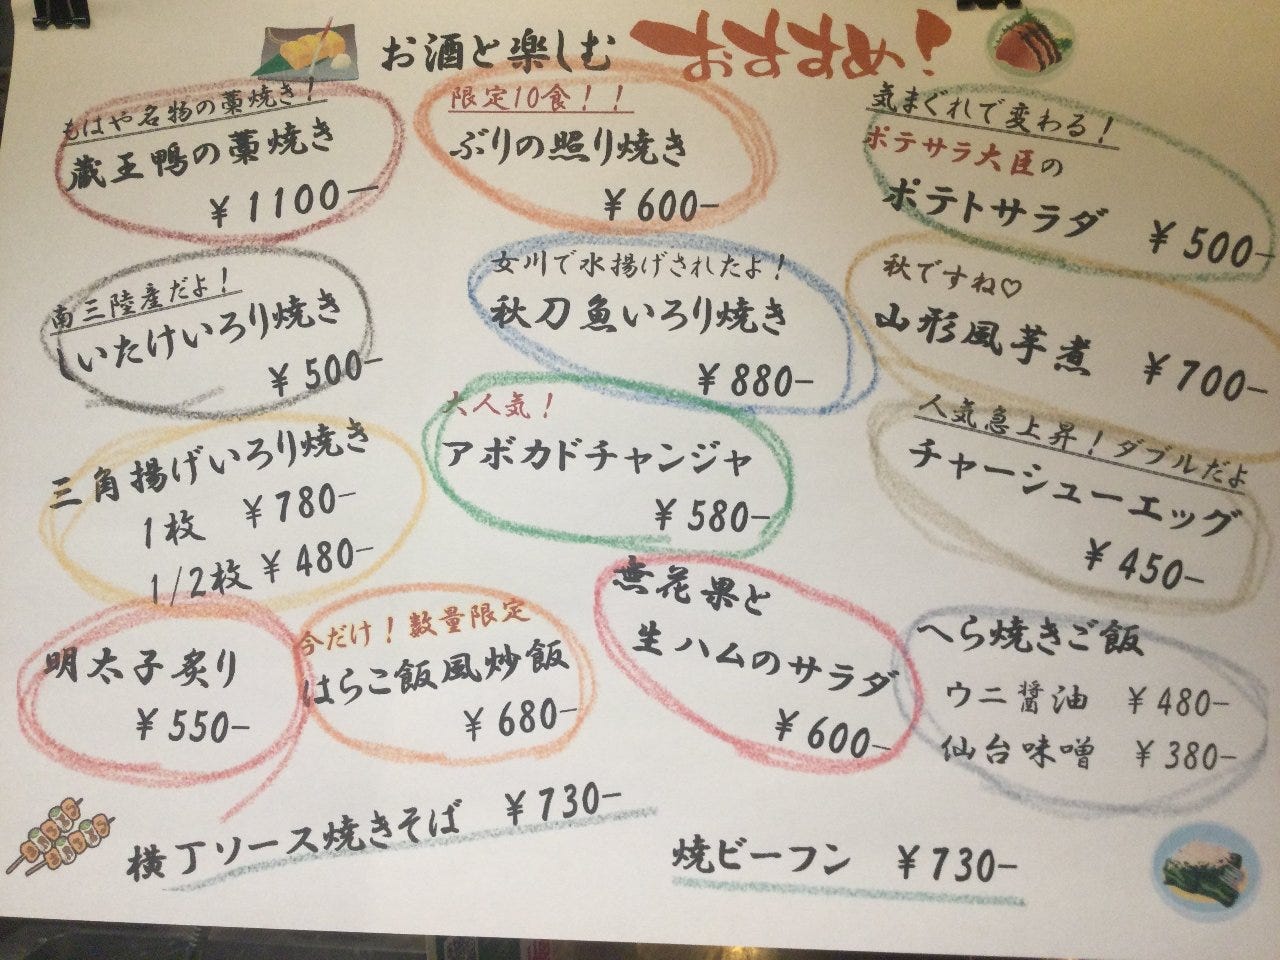 お酒と楽しむ おすすめ!
もはや名物の藁焼き!
蔵王鴨の藁焼き
¥1100-
限定10食!!
ぶりの照り焼き
¥600-
気まぐれで変わる!
ポテサラ大臣の
ポテトサラダ ¥500-
南三陸産だよ!
しいたけいろり焼き
¥500-
女川で水揚げされたよ!
秋刀魚いろり焼き
¥880-
秋ですね♡
山形風芋煮 ¥700-
三角揚げいろり焼き
1枚 ¥780-
1/2枚 ¥480-
大人気!
アボカドチャンジャ
¥580-
人気急上昇!ダブルだよ
チャーシューエッグ
¥450-
明太子炙り
¥550-
今だけ!数量限定
はらこ飯風炒飯
¥680-
無花果と
生ハムのサラダ
¥600-
へら焼きご飯
ウニ醤油 ¥480-
仙台味噌 ¥380-
横丁ソース焼きそば ¥730-
焼ビーフン ¥730-